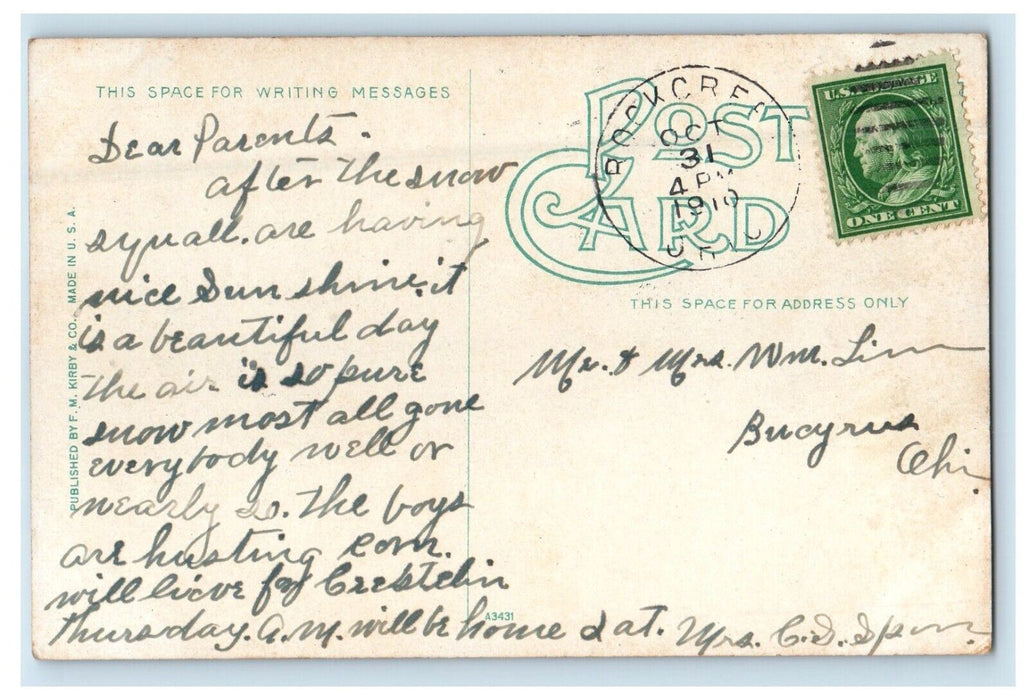 THIS SPACE FOR WRITING MESSAGES
Dear Parents.
after the snow
squall. are having
nice Sun shine. it
is a beautiful day
the air is so pure
snow most all gone
everybody well or
nearly so. the boys
are husting corn.
will lieve for
Thursday. A.M. will be home Sat. Mrs. C. S.
PUBLISHED BY F. M. KIRBY & CO. MADE IN U. S. A.
A3431
POST
CARD
ROCKCREE
OCT
31
4 PM
1910
U.S.
ONE CENT
THIS SPACE FOR ADDRESS ONLY
Mr. & Mrs. Wm.
Bucyrus
Ohi